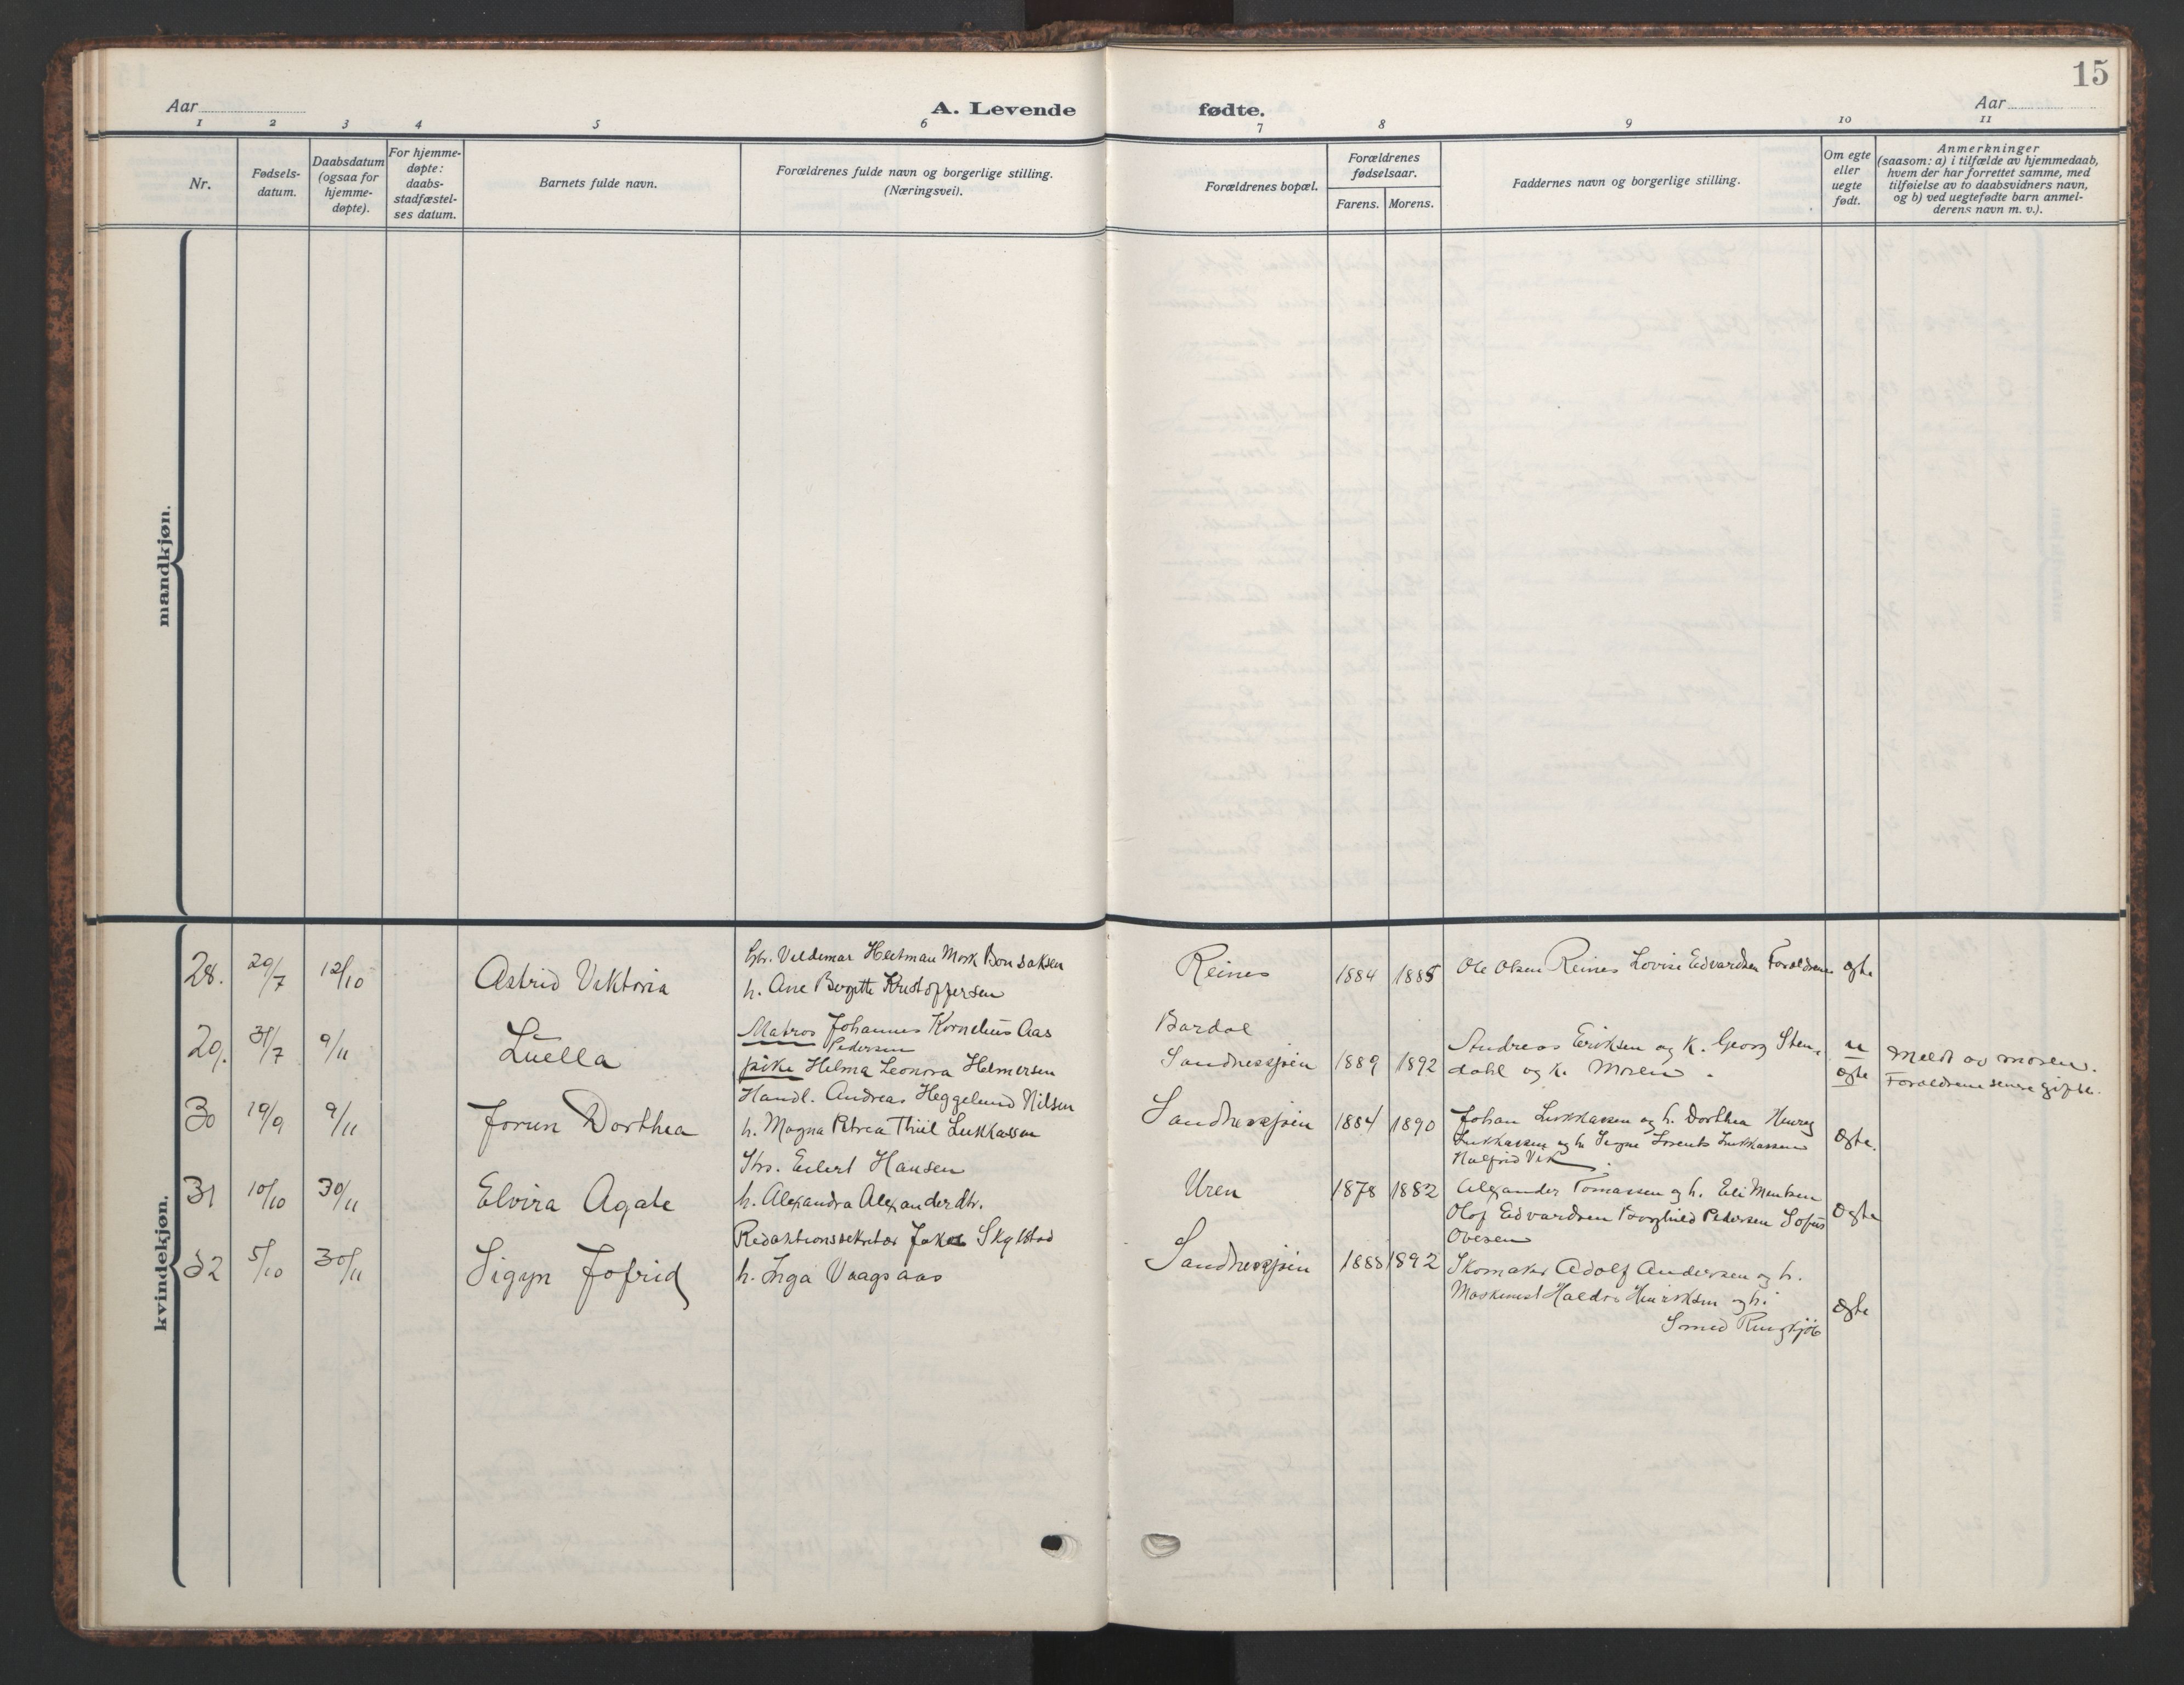 15
Aar
A. Levende fødte.
Aar
1 2 3 4 5 6 7 8 9 10 11
Nr.
Fødsels-
datum.
Daabsdatum
(ogsaa for
hjemme-
døpte).
For hjemme-
døpte:
daabs-
stadfæstel-
ses datum.
Barnets fulde navn.
Forældrenes fulde navn og borgerlige stilling.
(Næringsvei).
Forældrenes bopæl.
Forældrenes
fødselsaar.
Farens. Morens.
Faddernes navn og borgerlige stilling.
Om egte
eller
uegte
født.
Anmerkninger
(saasom: a) i tilfælde av hjemmedaab,
hvem der har forrettet samme, med
tilføielse av to daabsvidners navn,
og b) ved uegtefødte barn anmel-
derens navn m. v.).
mandkjøn.
kvindekjøn.
28. 29/7 12/10 Astrid Viktoria
Valdemar Mork Bonsaksen
h. Ane Bergitte Kristoffersen
Reines 1884 1885
Ole Olsen Reines Lovise Edvardsen Forældrene
egte
29. 31/7 9/11 Luella
Matros Johannes Kornelius Aas
Pedersen
pike Helma Leonora Helmersen
Bardal
Sandnessjøen 1889 1892
Andreas Eriksen og k. Georg Sten-
dahl og k. Moren.
u
egte
Meldt av moren.
Forældrene senere gifte.
30 19/9 9/11 Jorun Dorthea
Handl. Andreas Heggelund Nilsen
h. Magna Petrea Thiil Lukkassen
Sandnessjøen 1884 1890
Johan Lukkassen og h. Dorthea Henrey
Lukkassen og h. Signe Lorents Lukkassen
Halfrid Vik
egte.
31 10/10 30/11 Elvira Agate
Eilert Hansen
h. Alexandra Alexanderdtr.
Uren 1878 1882
Alexander Tomassen og h. Eli Mentsen
Olaf Edvardsen Borghild Pedersen Sofus
Ovesen
egte
32 5/10 30/11 Sigyn Jofrid
Redaktionssekretær Jakob Skylstad
h. Inga Vaagsaas
Sandnessjøen 1888 1892
Skomaker Adolf Andersen og h.
Maskinist Haldor Henriksen og h.
Smed Ringkjøb
egte